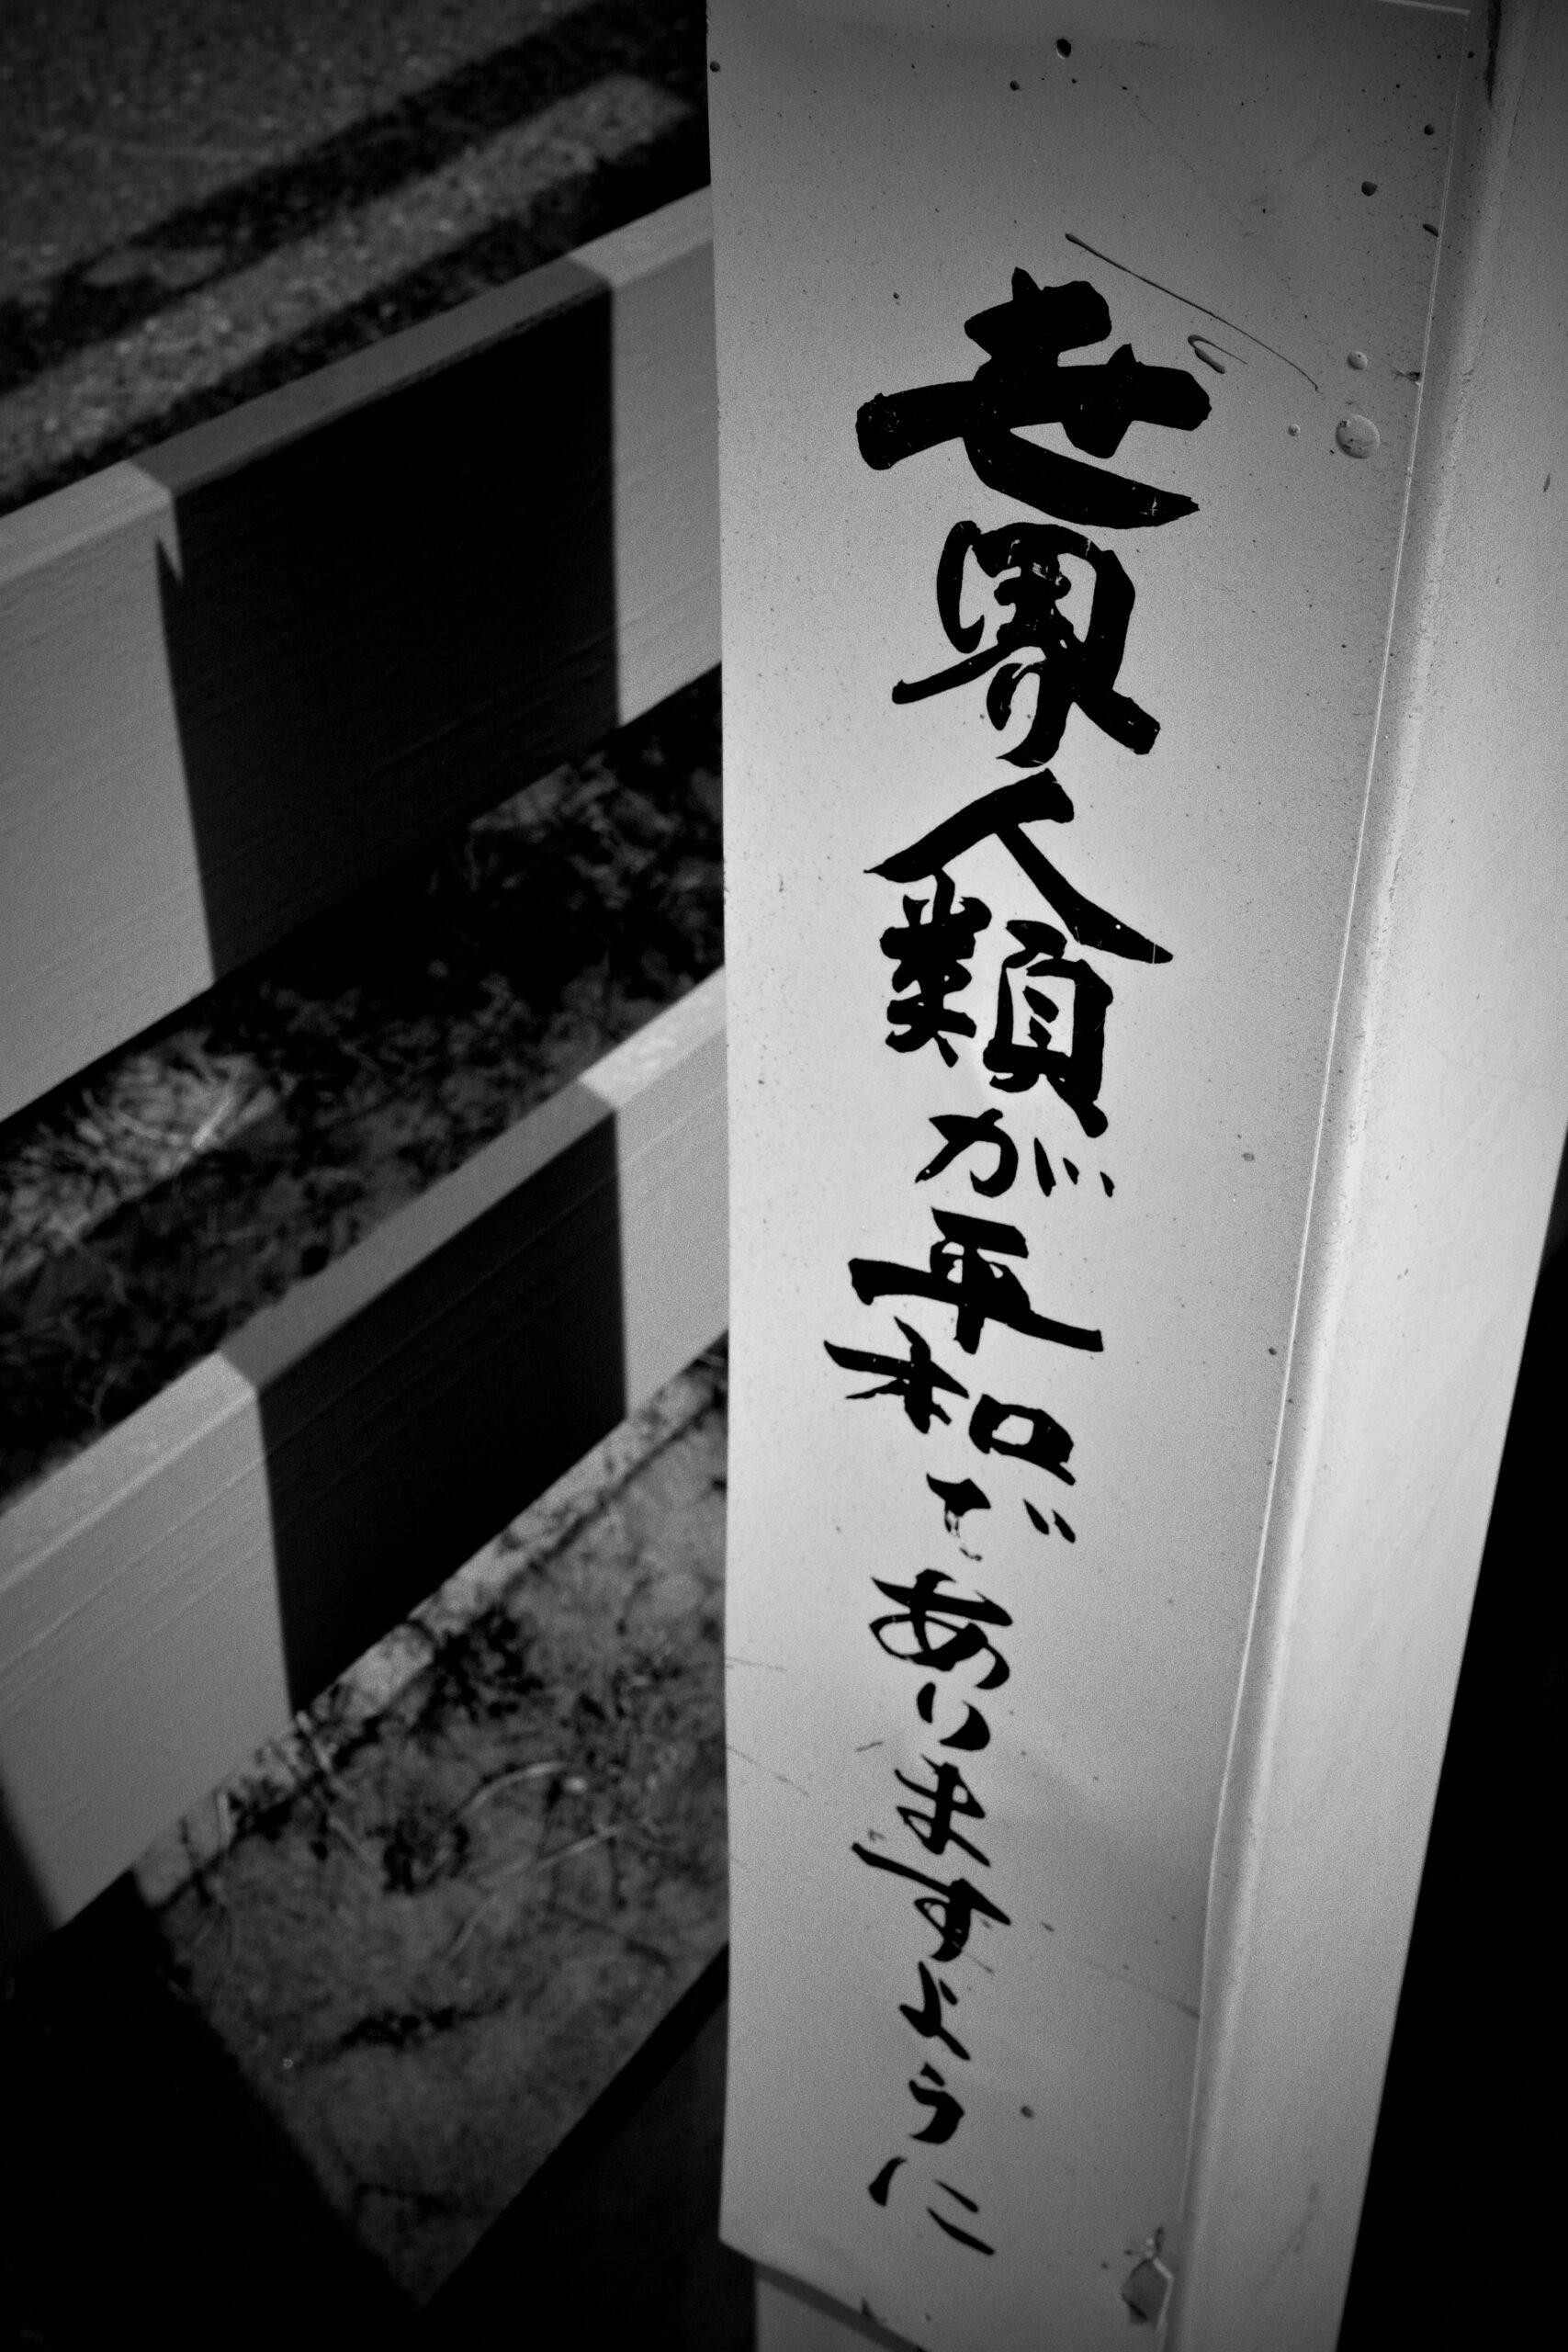 世界人類が平和であいますように